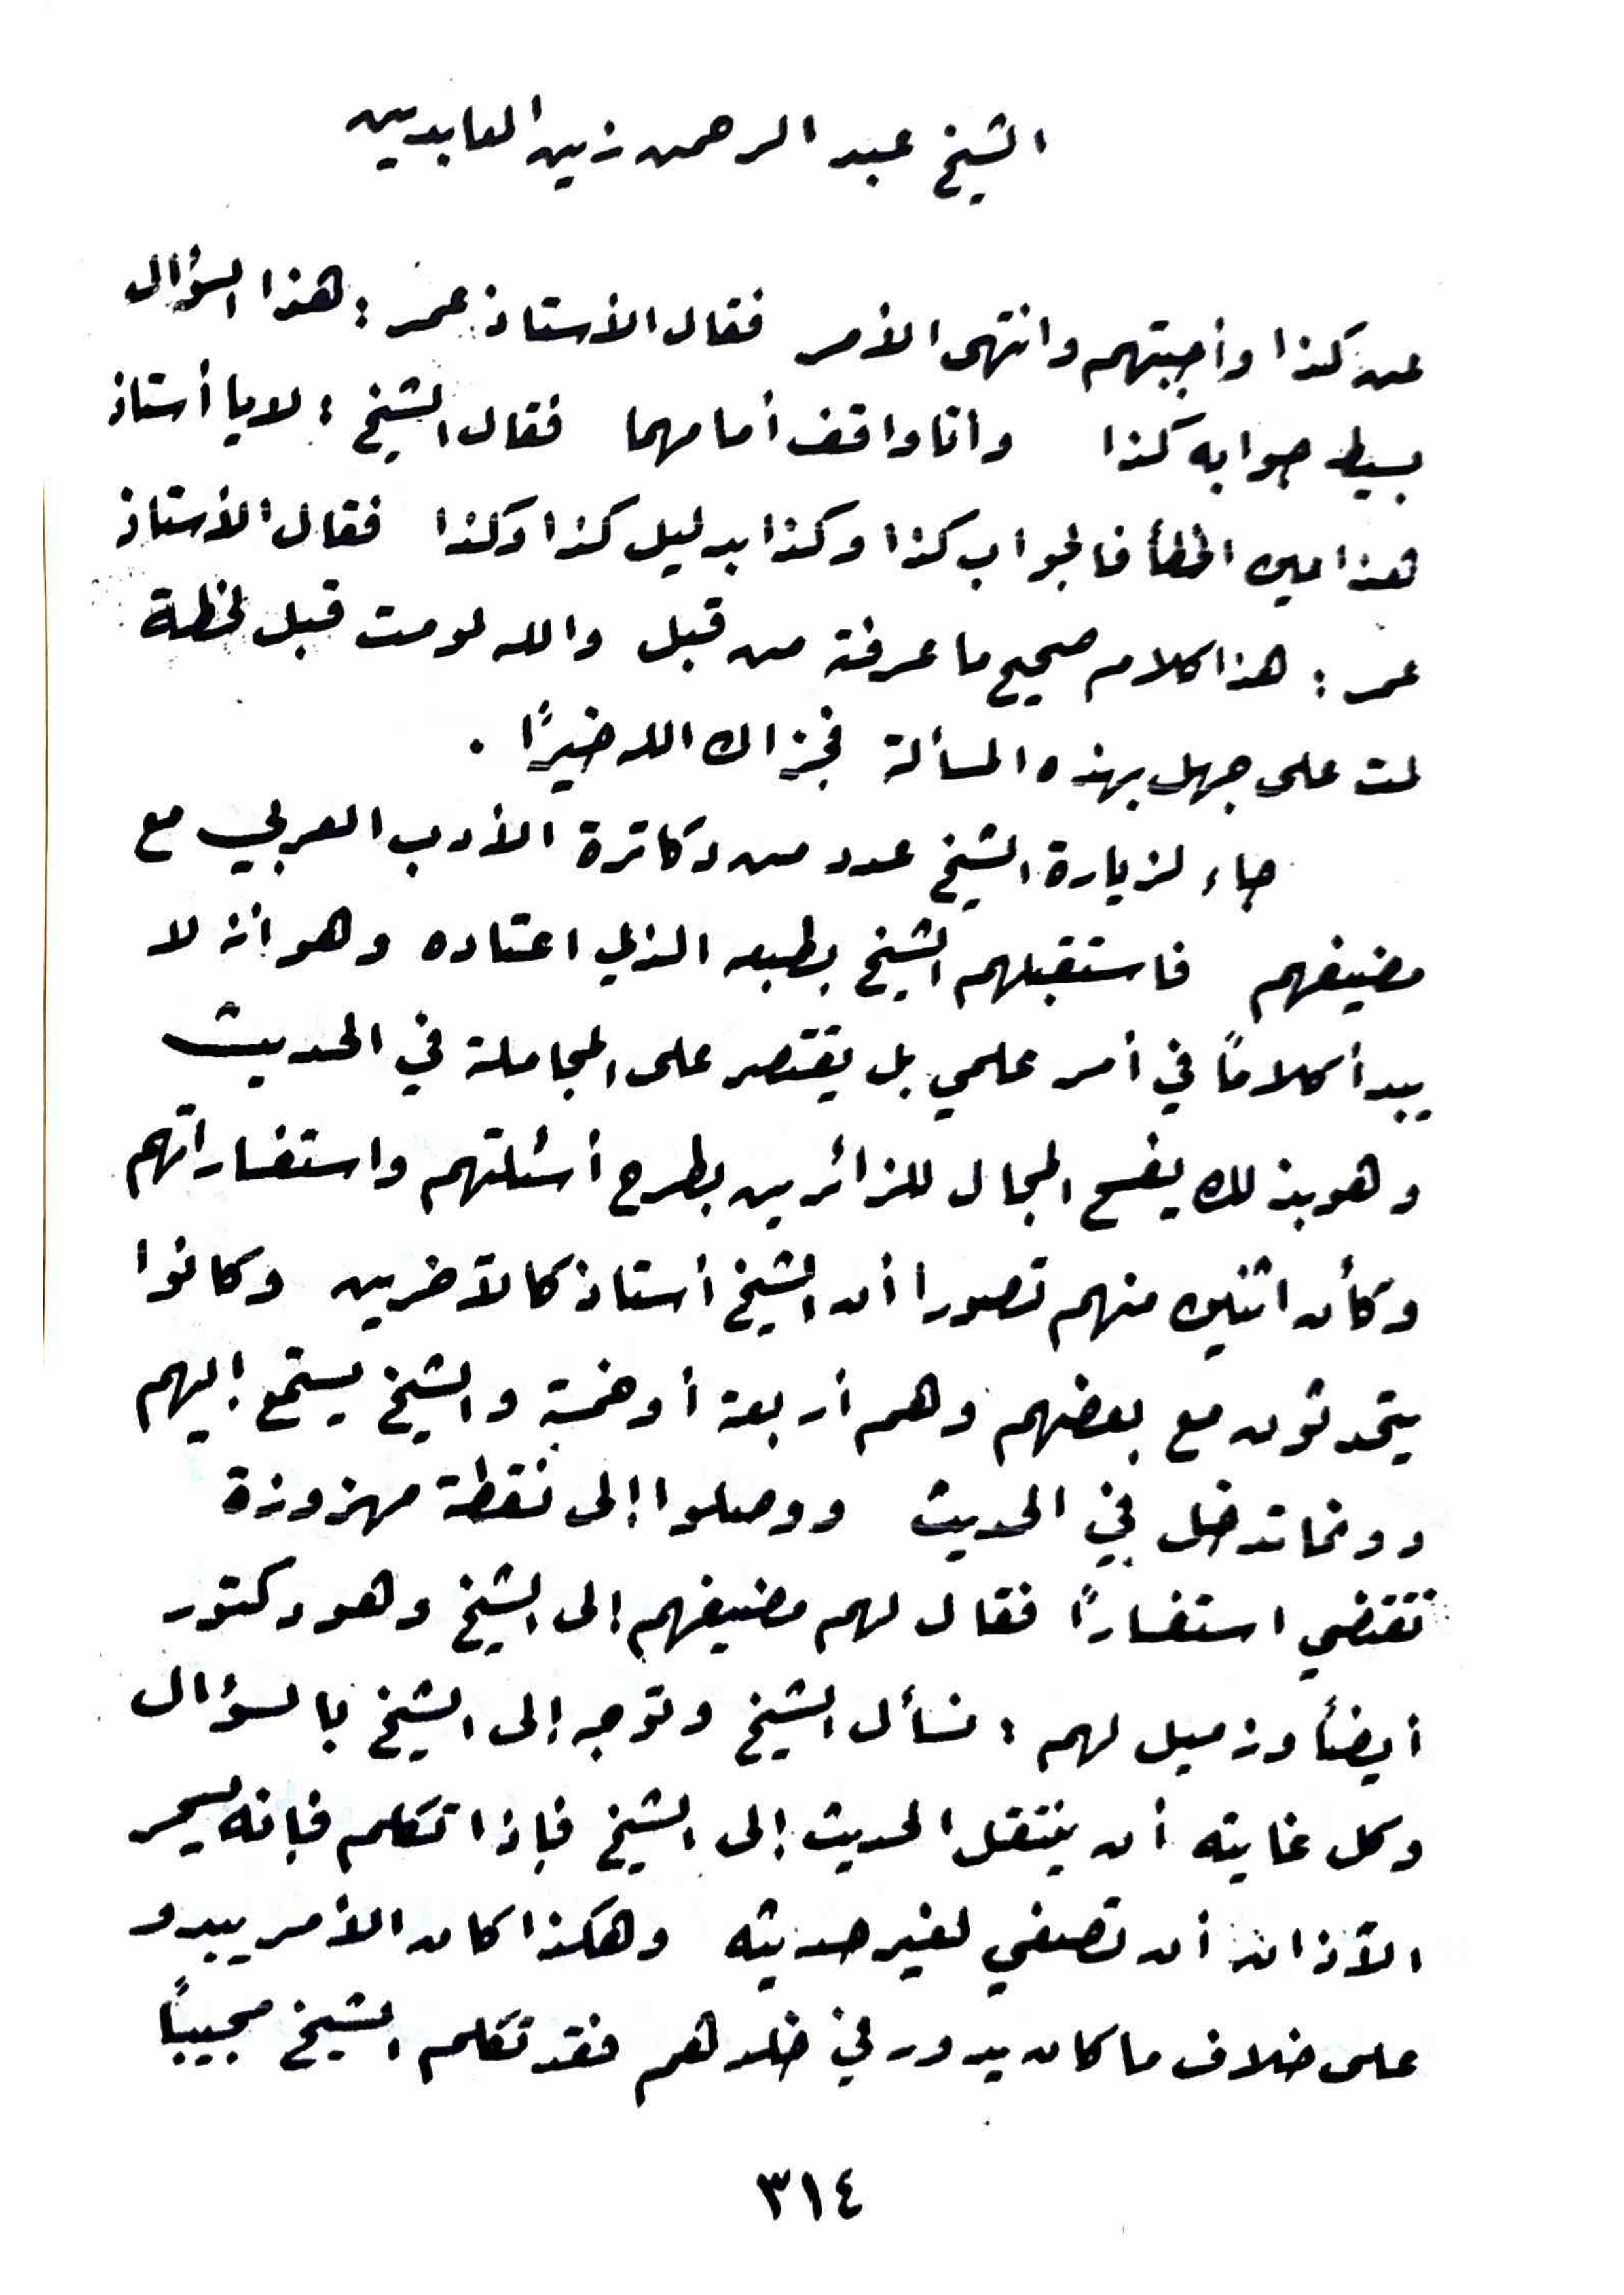 الشيخ عبد الرحمن زين العابدين
عن كذا وأجبتهم وانتهى الأمر فقال الأستاذ عمر : هذا السؤال
بسيط جوابه كذا وأنا واقف أمامهما فقال الشيخ : لا يا أستاذ
هذا عين الخطأ فالجواب كذا وكذا بدليل كذا وكذا فقال الأستاذ
عمر : هذا كلام صحيح ما عرفته من قبل والله لو مت قبل لحظة
لمت على جهل بهذه المسألة فجزاك الله خيرًا .
جاء لزيارة الشيخ عدد من دكاترة الأدب العربي مع
مضيفهم فاستقبلهم الشيخ بطبعه الذي اعتاده وهو أنه لا
يبدأ كلامًا في أمر علمي بل يقتصر على المجاملة في الحديث
وهو بذلك يفسح المجال للزائرين بطرح أسئلتهم واستفساراتهم
وكأن اثنين منهم تصورا أن الشيخ أستاذ كالآخرين وكانوا
يتحدثون مع بعضهم وهم أربعة أو خمسة والشيخ يستمع إليهم
دونما تدخل في الحديث ووصلوا إلى نقطة مهزوزة
تقتضي استفسارًا فقال لهم مضيفهم إلى الشيخ وهو دكتور
أيضًا وزميل لهم : نسأل الشيخ وتوجه إلى الشيخ بالسؤال
وكل غايته أن ينتقل الحديث إلى الشيخ فإذا تكلم فإنه يسحر
الآذان أن تصغي لغير حديثه وهكذا كان الأمر يبدو
على خلاف ما كان يدور في خلدهم فقد تكلم الشيخ مجيبًا
٣١٤